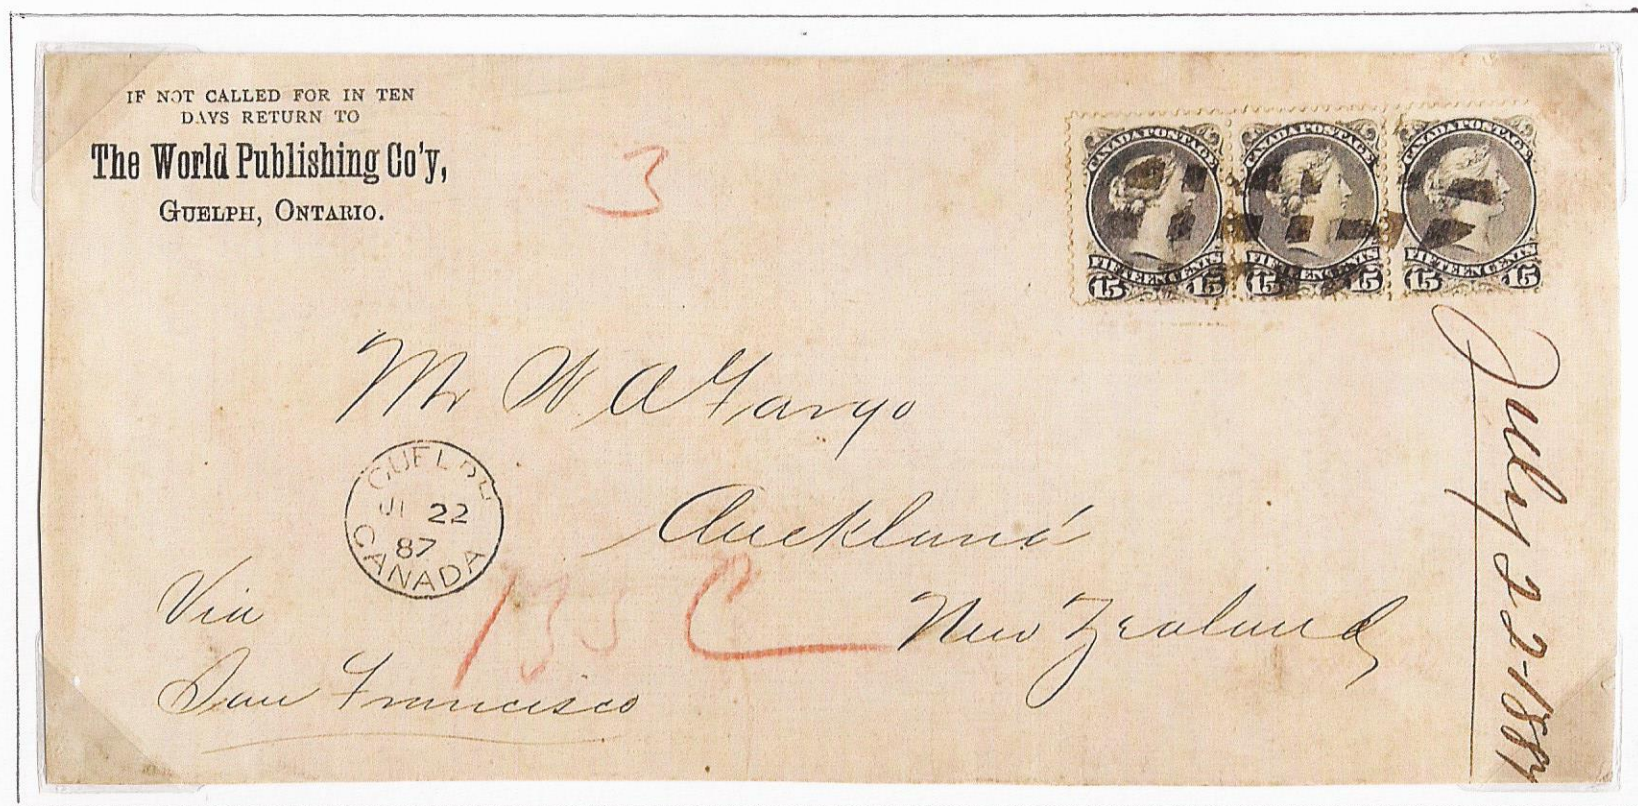 IF NOT CALLED FOR IN TEN
DAYS RETURN TO
The World Publishing Co'y,
GUELPH, ONTARIO.
3
CANADA POSTAGE
FIFTEEN CENTS
15 15
CANADA POSTAGE
FIFTEEN CENTS
15 15
CANADA POSTAGE
FIFTEEN CENTS
15 15
Mr W A Fargo
Auckland
New Zealand
GUELPH
22
87
CANADA
Via
San Francisco
July 22-1887